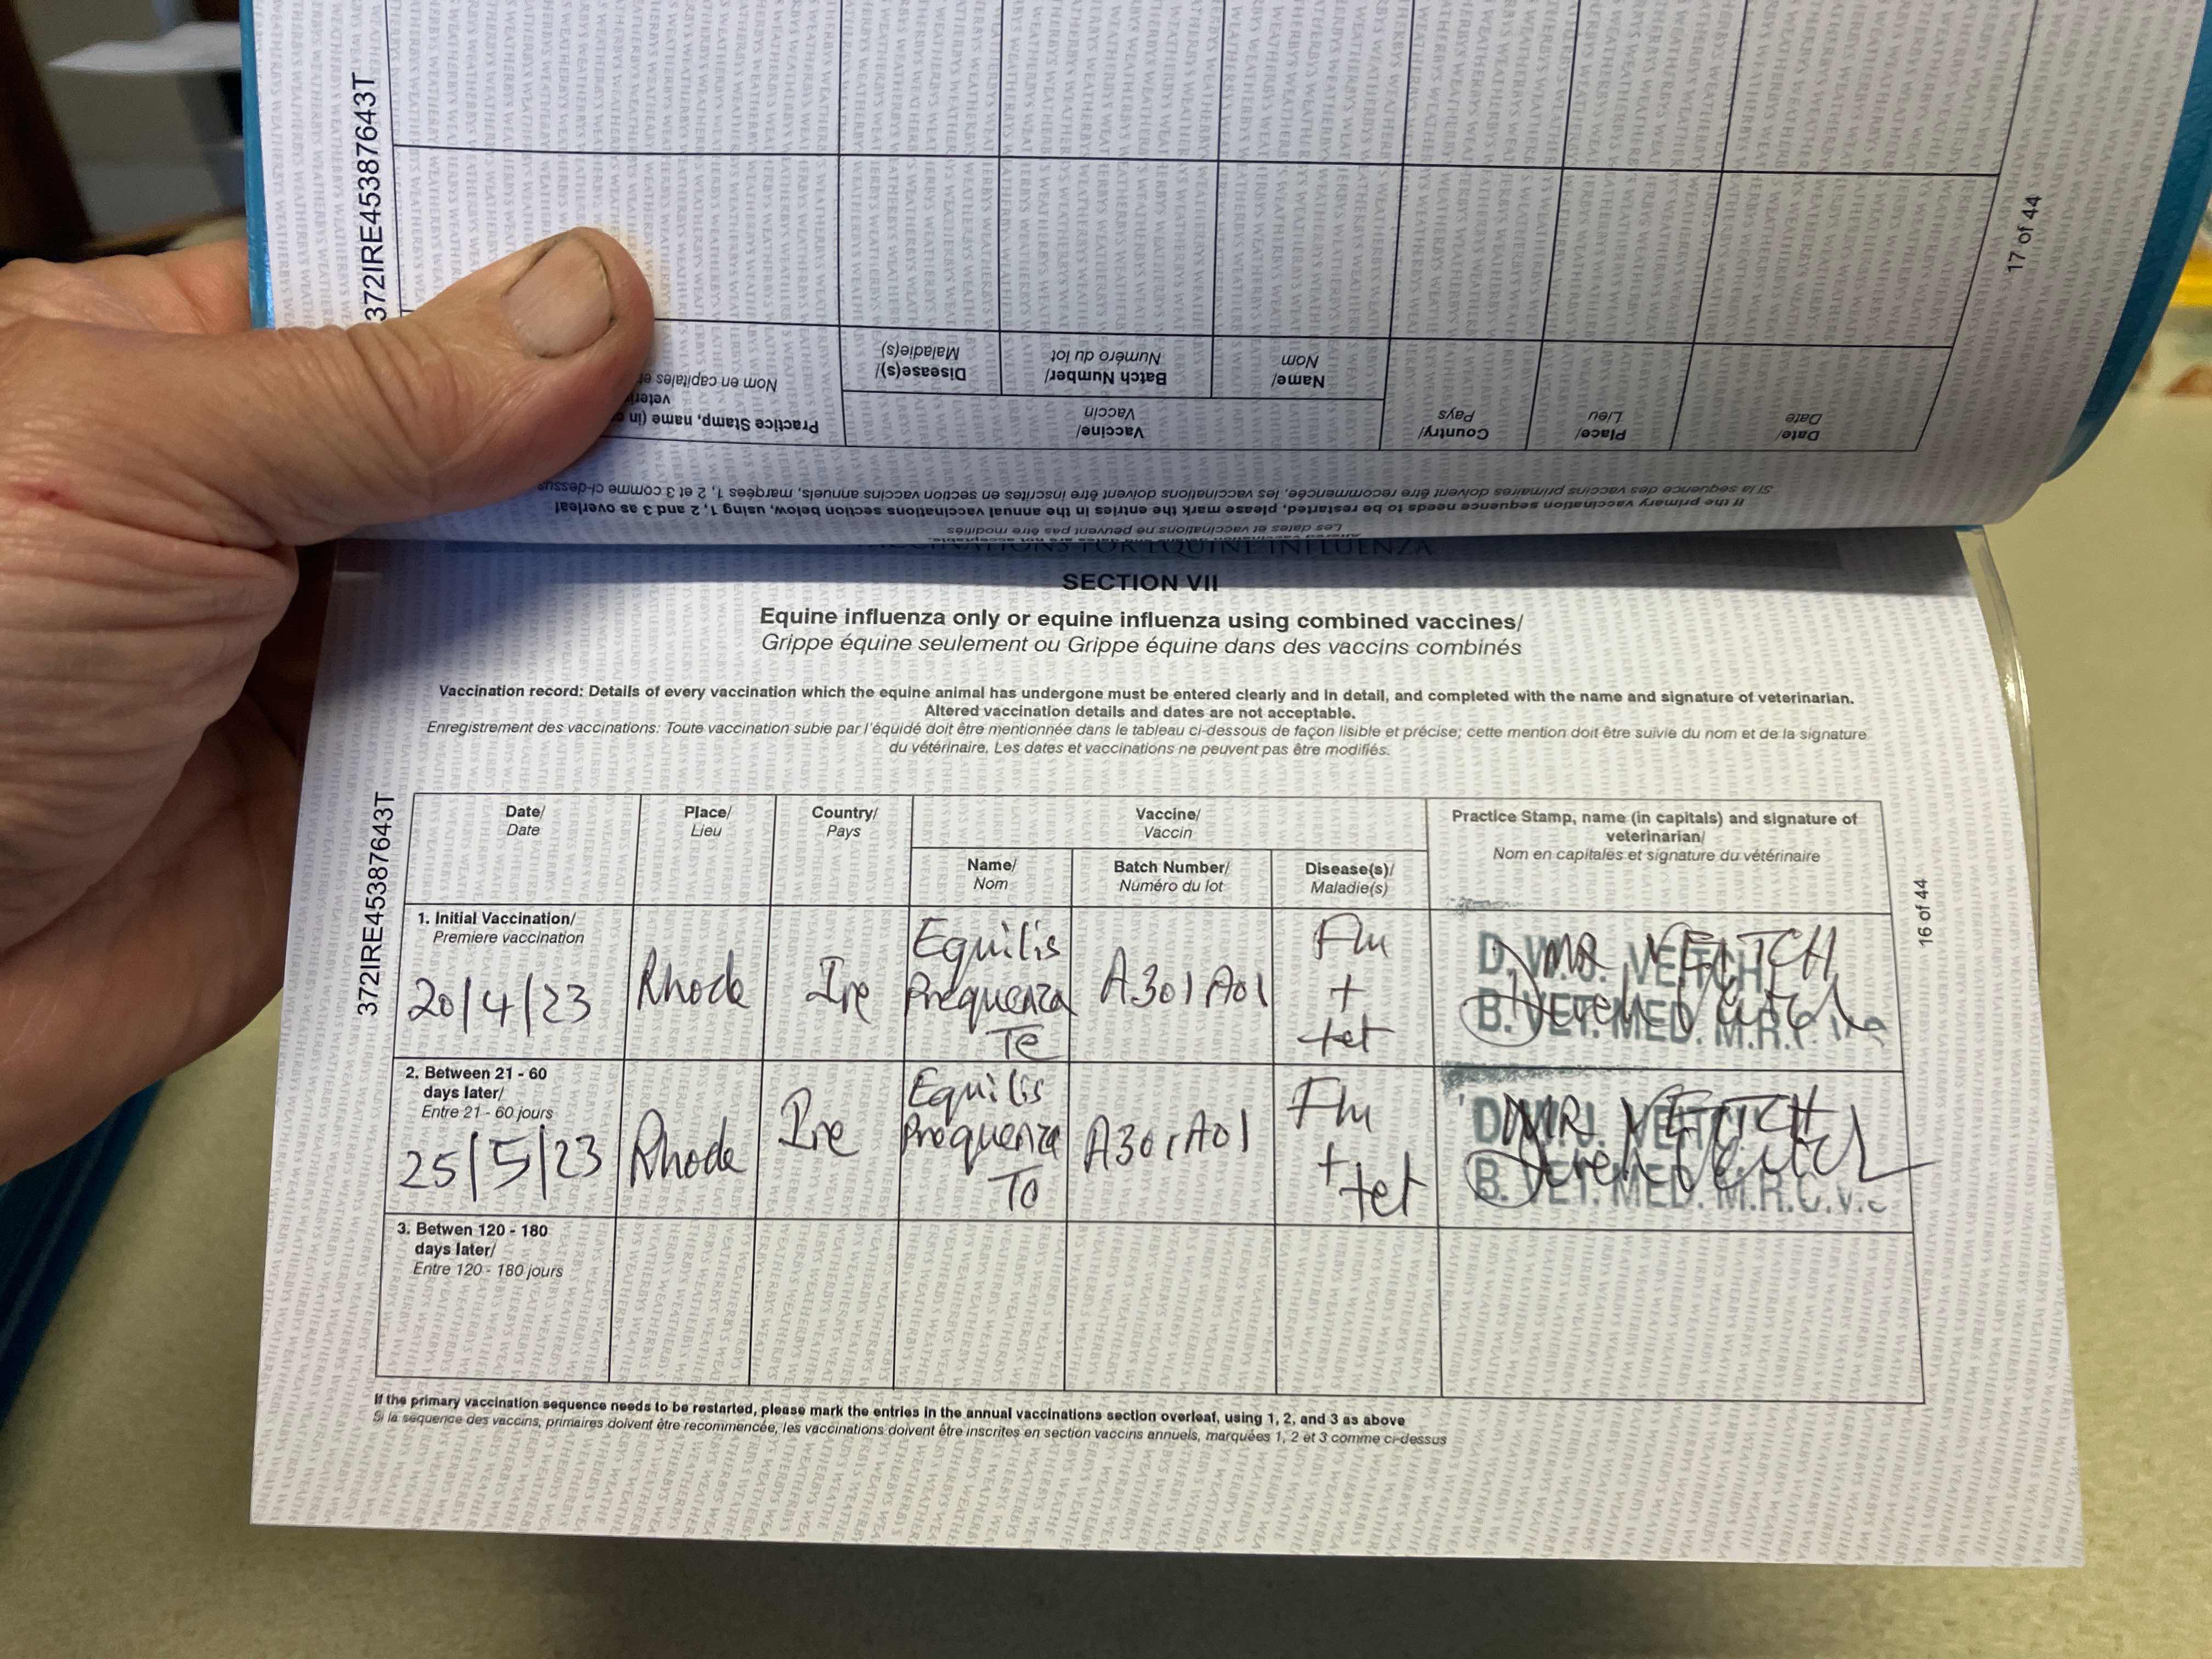 372IRE45387643T
17 of 44
Practice Stamp, name (in
veteri
Nom en capitales et
Disease(s)/
Maladie(s)
Batch Number/
Numéro du lot
Name/
Nom
Vaccine/
Vaccin
Country/
Pays
Place/
Lieu
Date/
Date
Si la sequence des vaccins primaires doivent être recommencée, les vaccinations doivent être inscrites en section vaccins annuels, marqées 1, 2 et 3 comme ci-dessus
If the primary vaccination sequence needs to be restarted, please mark the entries in the annual vaccinations section below, using 1, 2 and 3 as overleaf
Les dates et vaccinations ne peuvent pas être modifiés
VACCINATIONS FOR EQUINE INFLUENZA
SECTION VII
Equine influenza only or equine influenza using combined vaccines/
Grippe équine seulement ou Grippe équine dans des vaccins combinés
Vaccination record: Details of every vaccination which the equine animal has undergone must be entered clearly and in detail, and completed with the name and signature of veterinarian.
Altered vaccination details and dates are not acceptable.
Enregistrement des vaccinations: Toute vaccination subie par l'équidé doit être mentionnée dans le tableau ci-dessous de façon lisible et précise; cette mention doit être suivie du nom et de la signature
du vétérinaire. Les dates et vaccinations ne peuvent pas être modifiés.
372IRE45387643T
16 of 44
Date/
Date
Place/
Lieu
Country/
Pays
Vaccine/
Vaccin
Name/
Nom
Batch Number/
Numéro du lot
Disease(s)/
Maladie(s)
Practice Stamp, name (in capitals) and signature of
veterinarian/
Nom en capitales et signature du vétérinaire
1. Initial Vaccination/
Premiere vaccination
20/4/23
Rhode
Ire
Equilis
Prequenza
Te
A301A01
Flu
+
tet
MR VEITCH
D. W. J. VEITCH
B. VET. MED. M.R.C.V.S
2. Between 21 - 60
days later/
Entre 21 - 60 jours
25/5/23
Rhode
Ire
Equilis
Prequenza
Te
A301A01
Flu
+ tet
MR VEITCH
D. W. J. VEITCH
B. VET. MED. M.R.C.V.S
3. Betwen 120 - 180
days later/
Entre 120 - 180 jours
If the primary vaccination sequence needs to be restarted, please mark the entries in the annual vaccinations section overleaf, using 1, 2, and 3 as above
Si la séquence des vaccins, primaires doivent être recommencée, les vaccinations doivent être inscrites en section vaccins annuels, marquées 1, 2 et 3 comme ci-dessus